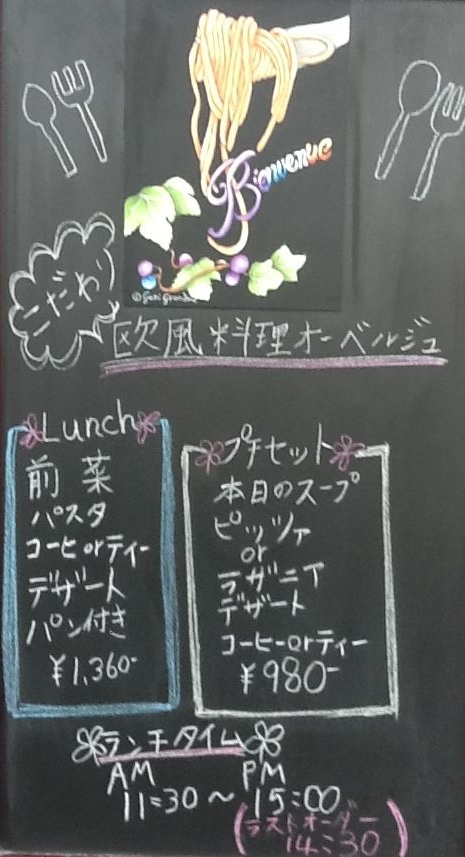 Bienvenue
こだわり
欧風料理オーベルジュ
Lunch
前菜
パスタ
コーヒorティー
デザート
パン付き
¥1,360-
プチセット
本日のスープ
ピッツァ
or
ラザニア
デザート
コーヒーorティー
¥980-
ランチタイム
AM PM
11:30～15:00
(ラストオーダー
14:30)